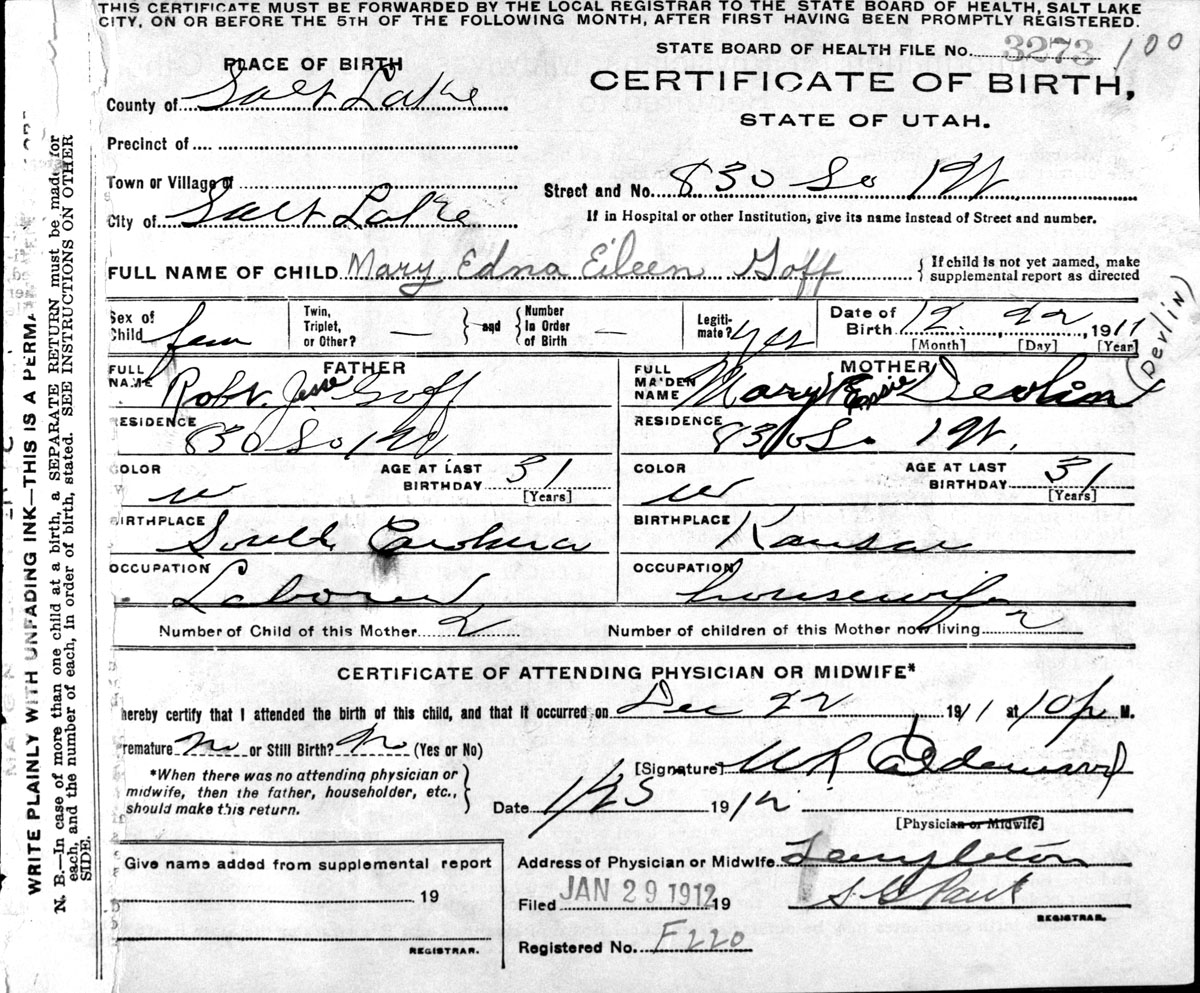 THIS CERTIFICATE MUST BE FORWARDED BY THE LOCAL REGISTRAR TO THE STATE BOARD OF HEALTH, SALT LAKE
CITY, ON OR BEFORE THE 5TH OF THE FOLLOWING MONTH, AFTER FIRST HAVING BEEN PROMPTLY REGISTERED.
STATE BOARD OF HEALTH FILE No. 3273 100
CERTIFICATE OF BIRTH,
STATE OF UTAH.
PLACE OF BIRTH
County of Salt Lake
Precinct of
Town or Village of
City of Salt Lake
Street and No. 830 So 1 W
If in Hospital or other Institution, give its name instead of Street and number.
FULL NAME OF CHILD Mary Edna Eileen Goff
If child is not yet named, make
supplemental report as directed
Sex of Child fem
Twin, Triplet, or Other? —
and
Number In Order of Birth —
Legitimate? Yes
Date of Birth 12 22, 1911
[Month] [Day] [Year]
(Devlin)
FATHER
FULL NAME Robt. Jesse Goff
RESIDENCE 830 So 1 W
COLOR w
AGE AT LAST BIRTHDAY 31
[Years]
BIRTHPLACE South Carolina
OCCUPATION Laborer
MOTHER
FULL MAIDEN NAME Mary Essie Devlin
RESIDENCE 830 So 1 W.
COLOR w
AGE AT LAST BIRTHDAY 31
[Years]
BIRTHPLACE Kansas
OCCUPATION housewife
Number of Child of this Mother 2
Number of children of this Mother now living 2
CERTIFICATE OF ATTENDING PHYSICIAN OR MIDWIFE*
hereby certify that I attended the birth of this child, and that it occurred on Dec 22 1911 at 10 p M.
remature n or Still Birth? n (Yes or No)
*When there was no attending physician or
midwife, then the father, householder, etc.,
should make this return.
[Signature] W R Calderwood
Date 1/25 1912
[Physician or Midwife]
Give name added from supplemental report
19
REGISTRAR.
Address of Physician or Midwife Templeton
Filed JAN 29 1912 19 S. G. Paul
REGISTRAR.
Registered No. F220
WRITE PLAINLY WITH UNFADING INK—THIS IS A PERMA
N. B.—In case of more than one child at a birth, a SEPARATE RETURN must be made for
each, and the number of each, in order of birth, stated. SEE INSTRUCTIONS ON OTHER
SIDE.